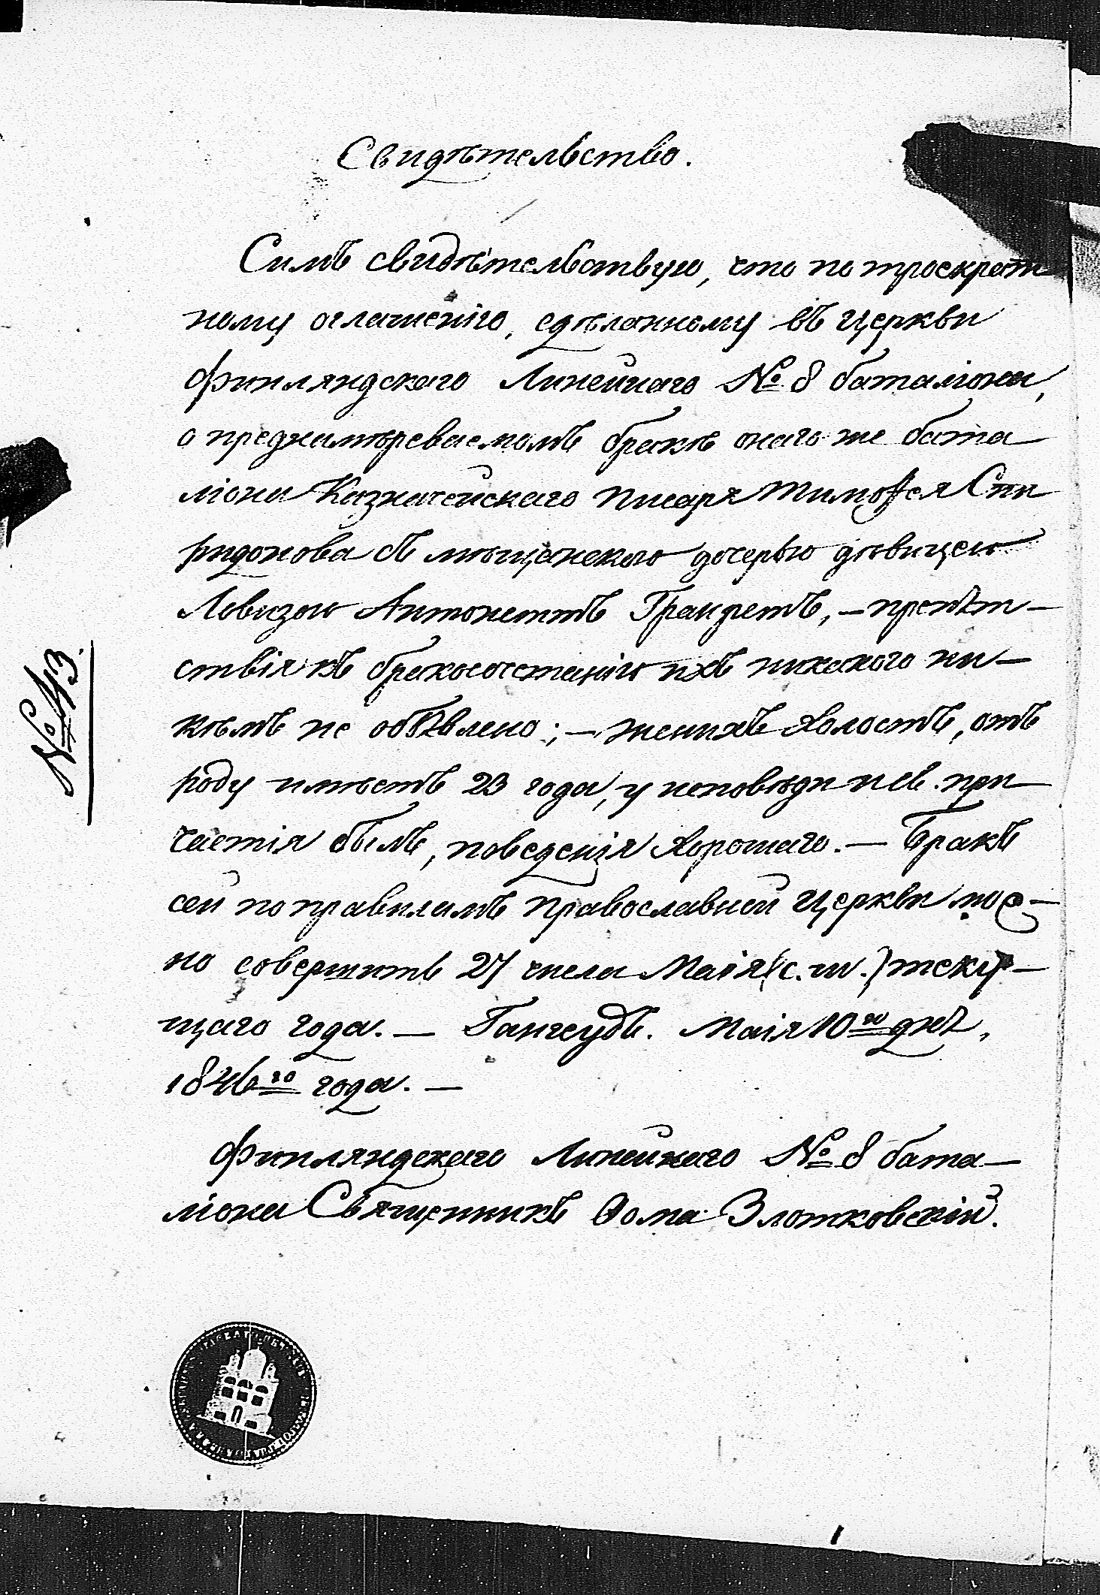 Свидѣтельство.
Симъ свидѣтельствую, что по троекрат
ному оглашенію, сдѣланному въ Церкви
Финляндскаго Линейнаго № 8 баталіона,
о преднамѣреваемомъ бракѣ онаго же бата
ліона Казначейскаго писаря Тимоѳея Спи
ридонова съ мѣщанскою дочерью дѣвицею
Ловизою Антонеттъ Гранретъ, — препят—
ствія къ бракосочетанію ихъ никакого ни—
кѣмъ не объявлено; — женихъ холостъ, отъ
роду имѣетъ 23 года, у исповѣди и св. при—
частія былъ, поведенія хорошаго. — Бракъ
сей по правиламъ Православной Церкви мож—
но совершить 27 числа Маія (с. ш.) теку—
щаго года. — Гангеудъ. Маія 10го дня,
1846го года. —
Финляндскаго Линейнаго № 8 бата—
ліона Священникъ Ѳома Злотковскій.
№ 43.